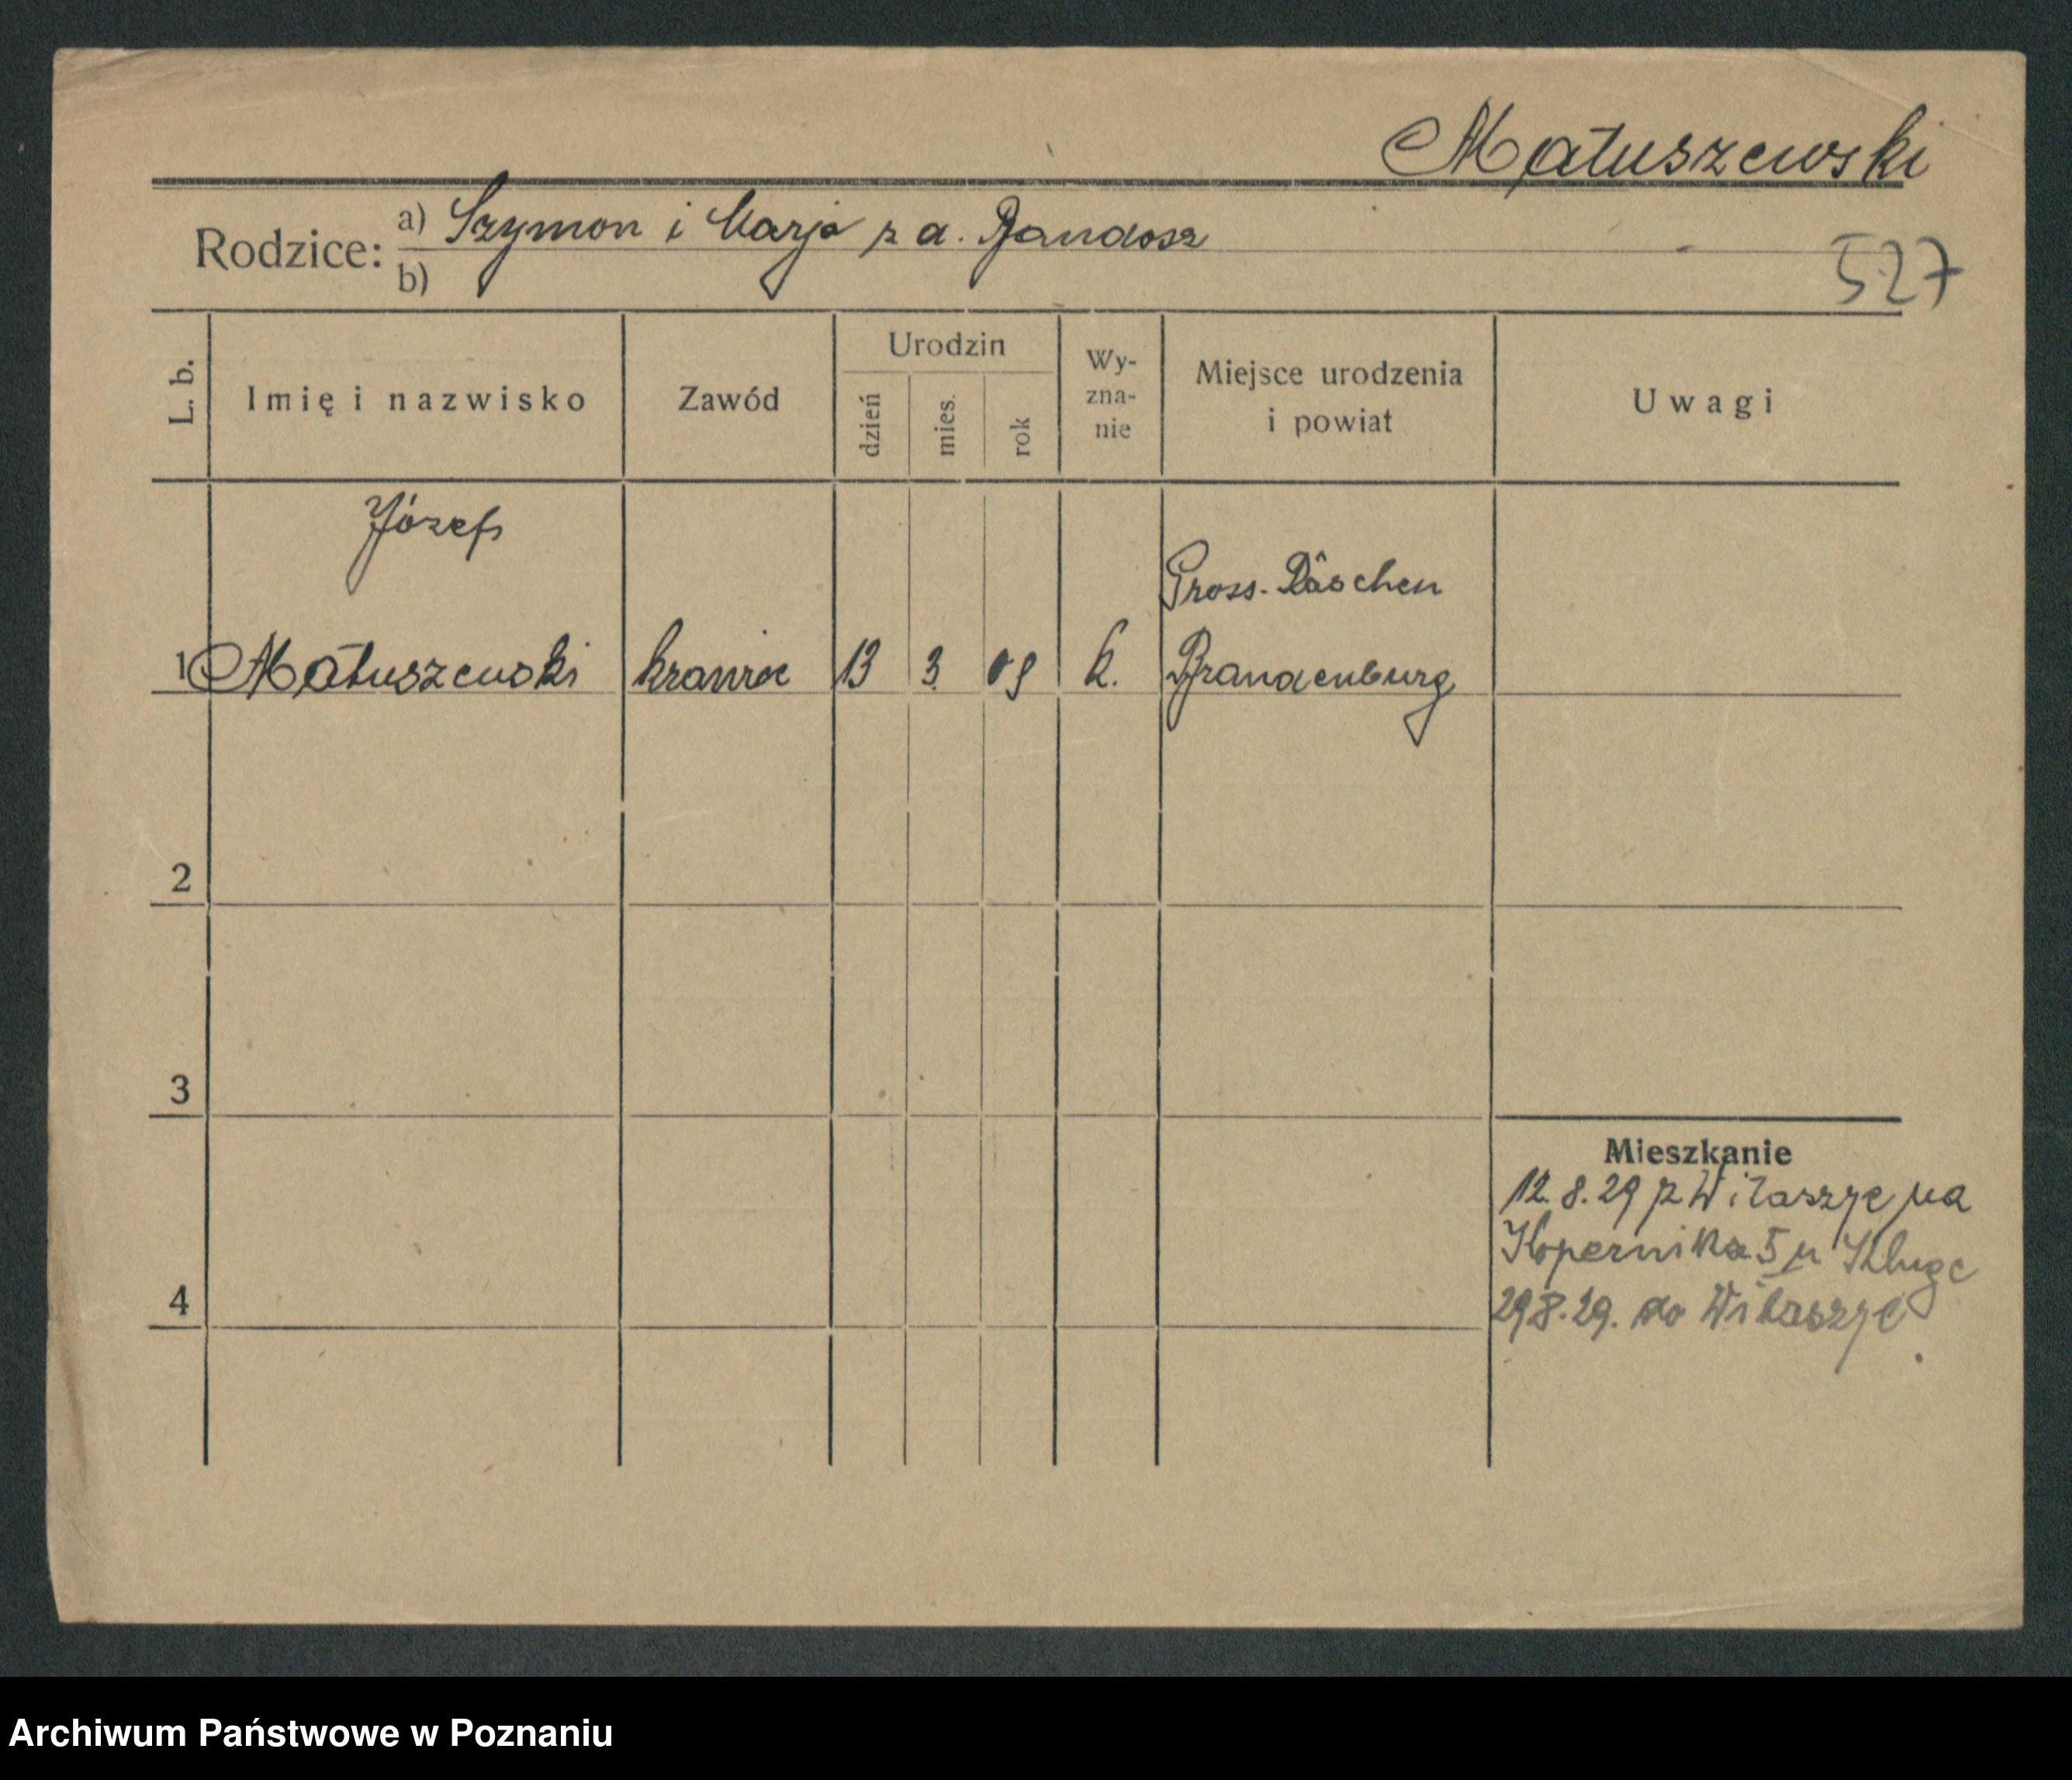 Matuszewski
Rodzice: a) Szymon i Marja z d. Bandosz
b)
527
L. b. Imię i nazwisko Zawód Urodzin dzień mies. rok Wy-zna-nie Miejsce urodzenia i powiat Uwagi
Józef
Gross-Räschen
1 Matuszewski krawiec 13 3 09 k. Brandenburg
2
3
4
Mieszkanie
12.8.29 z Witaszyc na
Kopernika 5 u Kluge
29.8.29. do Witaszyc
Archiwum Państwowe w Poznaniu